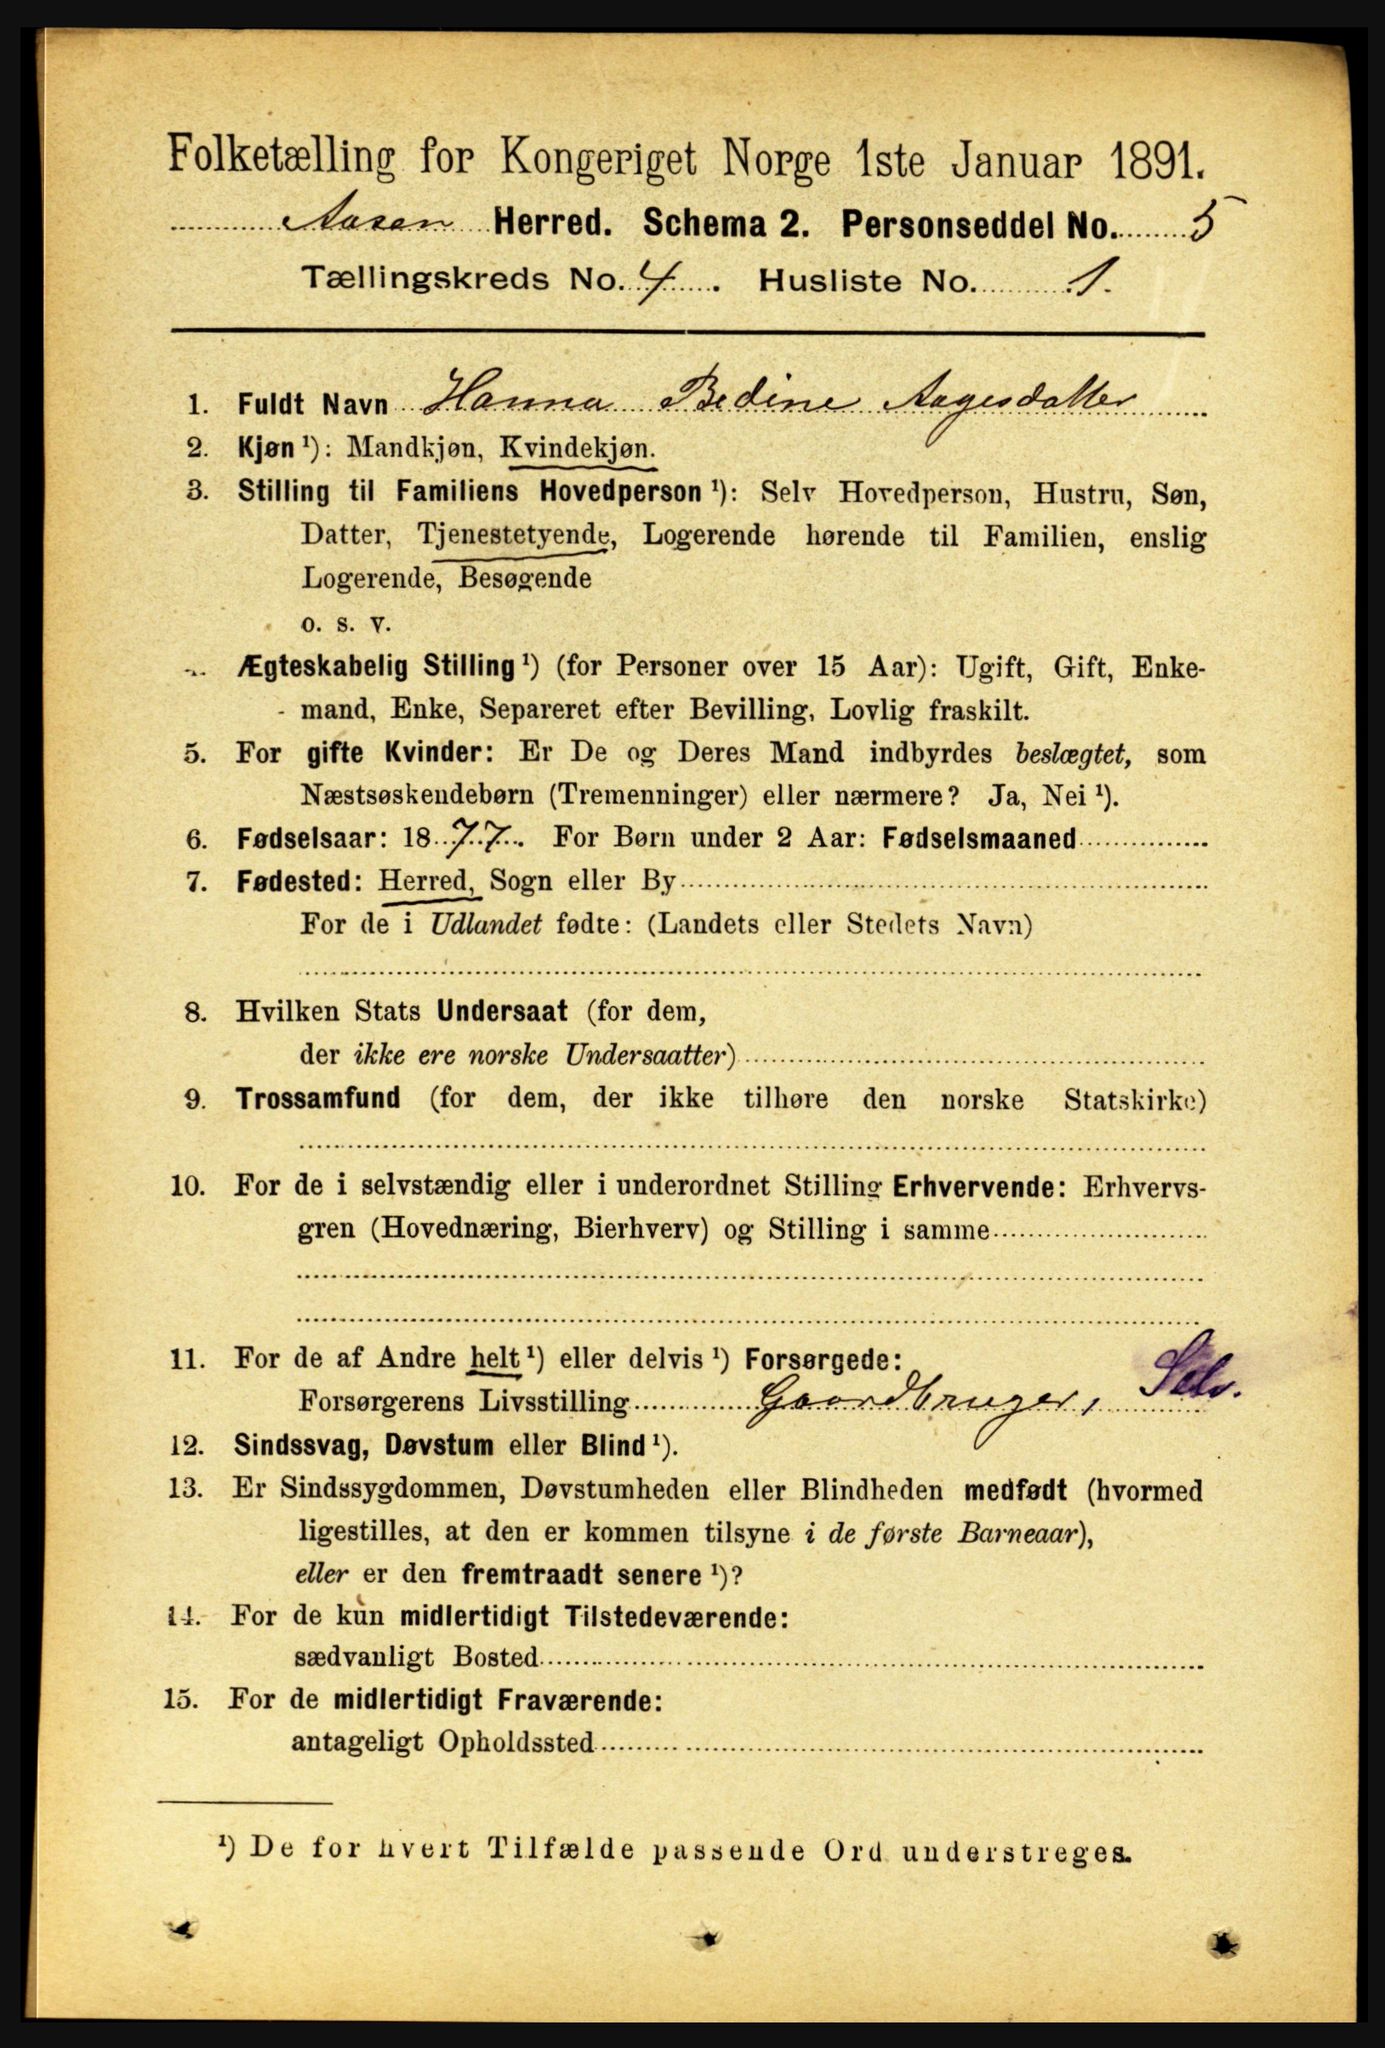 Folketælling for Kongeriget Norge 1ste Januar 1891.
Aasen Herred. Schema 2. Personseddel No. 5
Tællingskreds No. 4. Husliste No. 1.
1. Fuldt Navn Hanna Bedine Aagesdatter
2. Kjøn ¹): Mandkjøn, Kvindekjøn.
3. Stilling til Familiens Hovedperson ¹): Selv Hovedperson, Hustru, Søn,
Datter, Tjenestetyende, Logerende hørende til Familien, enslig
Logerende, Besøgende
o. s. v.
Ægteskabelig Stilling ¹) (for Personer over 15 Aar): Ugift, Gift, Enke-
mand, Enke, Separeret efter Bevilling, Lovlig fraskilt.
5. For gifte Kvinder: Er De og Deres Mand indbyrdes beslægtet, som
Næstsøskendebørn (Tremenninger) eller nærmere? Ja, Nei ¹).
6. Fødselsaar: 1877. For Børn under 2 Aar: Fødselsmaaned
7. Fødested: Herred, Sogn eller By
For de i Udlandet fødte: (Landets eller Stedets Navn)
8. Hvilken Stats Undersaat (for dem,
der ikke ere norske Undersaatter)
9. Trossamfund (for dem, der ikke tilhøre den norske Statskirke)
10. For de i selvstændig eller i underordnet Stilling Erhvervende: Erhvervs-
gren (Hovednæring, Bierhverv) og Stilling i samme
11. For de af Andre helt ¹) eller delvis ¹) Forsørgede:
Forsørgerens Livsstilling Gaardbruger, Selv.
12. Sindssvag, Døvstum eller Blind ¹).
13. Er Sindssygdommen, Døvstumheden eller Blindheden medfødt (hvormed
ligestilles, at den er kommen tilsyne i de første Barneaar),
eller er den fremtraadt senere ¹)?
14. For de kun midlertidigt Tilstedeværende:
sædvanligt Bosted
15. For de midlertidigt Fraværende:
antageligt Opholdssted
¹) De for hvert Tilfælde passende Ord understreges.